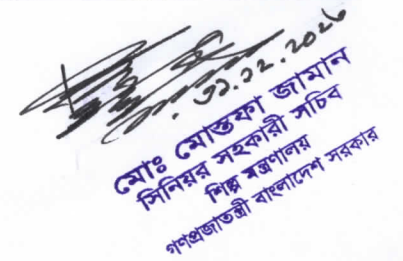 ৩১.১২.২০২৬
মোঃ মোস্তফা জামান
সিনিয়র সহকারী সচিব
শিল্প মন্ত্রণালয়
গণপ্রজাতন্ত্রী বাংলাদেশ সরকার